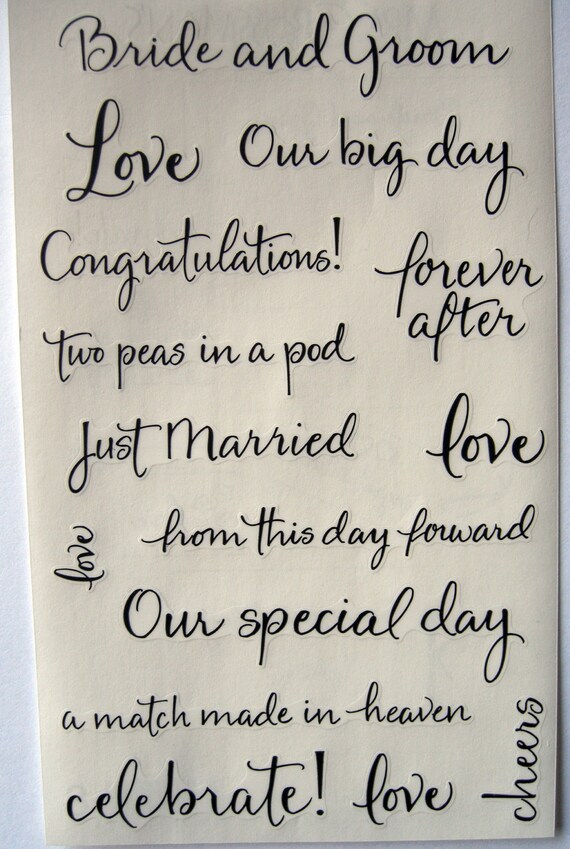 Bride and Groom
Love
Our big day
Congratulations!
forever
after
two peas in a pod
Just Married
love
love
from this day forward
Our special day
a match made in heaven
cheers
celebrate!
love